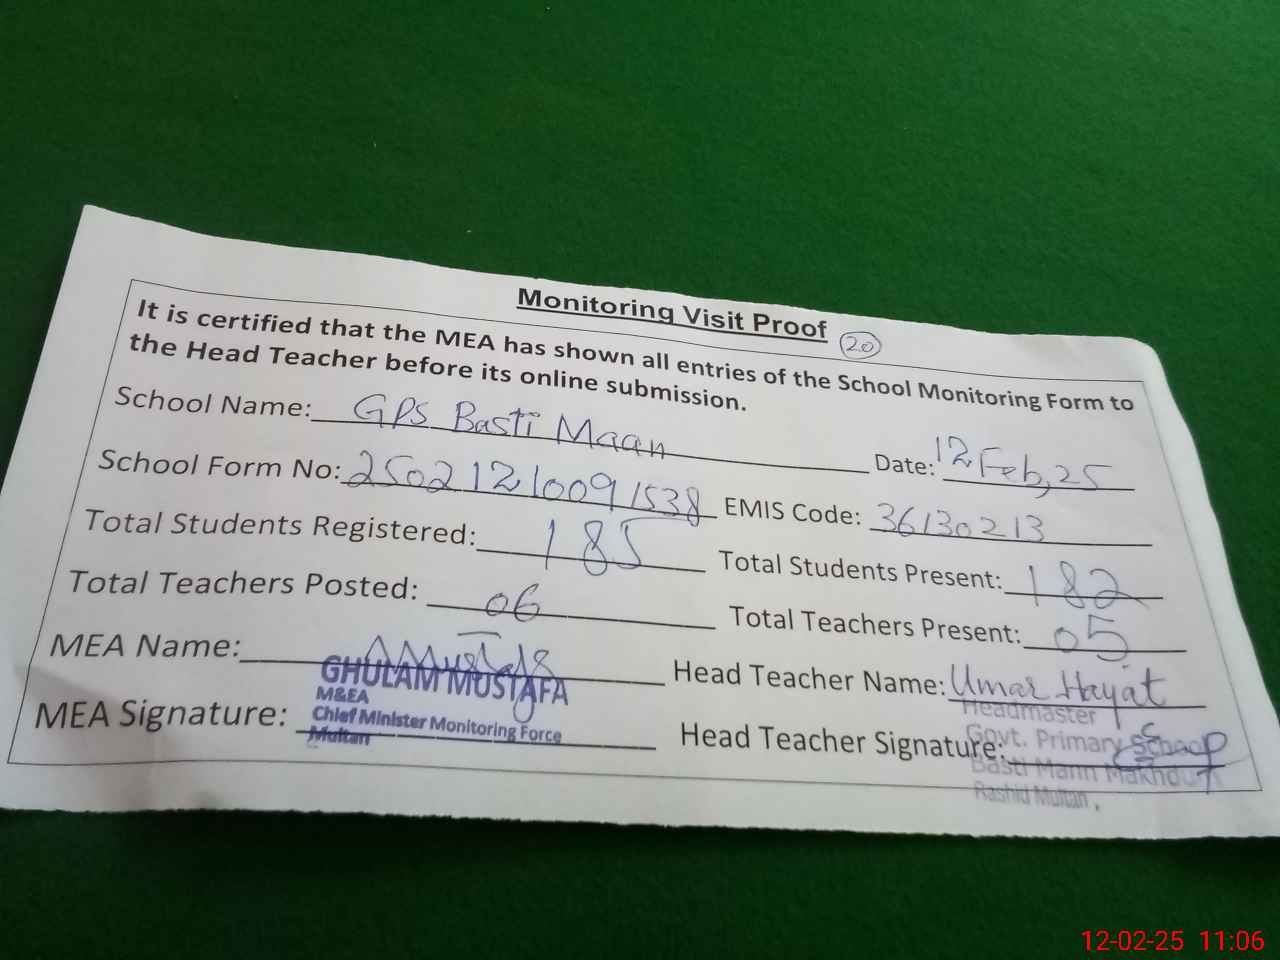 Monitoring Visit Proof 20
It is certified that the MEA has shown all entries of the School Monitoring Form to
the Head Teacher before its online submission.
School Name: GPS Basti Maan Date: 12 Feb, 25
School Form No: 25021210091538 EMIS Code: 36130213
Total Students Registered: 185 Total Students Present: 182
Total Teachers Posted: 06 Total Teachers Present: 05
MEA Name: GHULAM MUSTAFA Head Teacher Name: Umar Hayat
M&EA
Chief Minister Monitoring Force
Multan
MEA Signature: Head Teacher Signature:
Headmaster
Govt. Primary School
Basti Mann Makhdum
Rashid Multan.
12-02-25 11:06